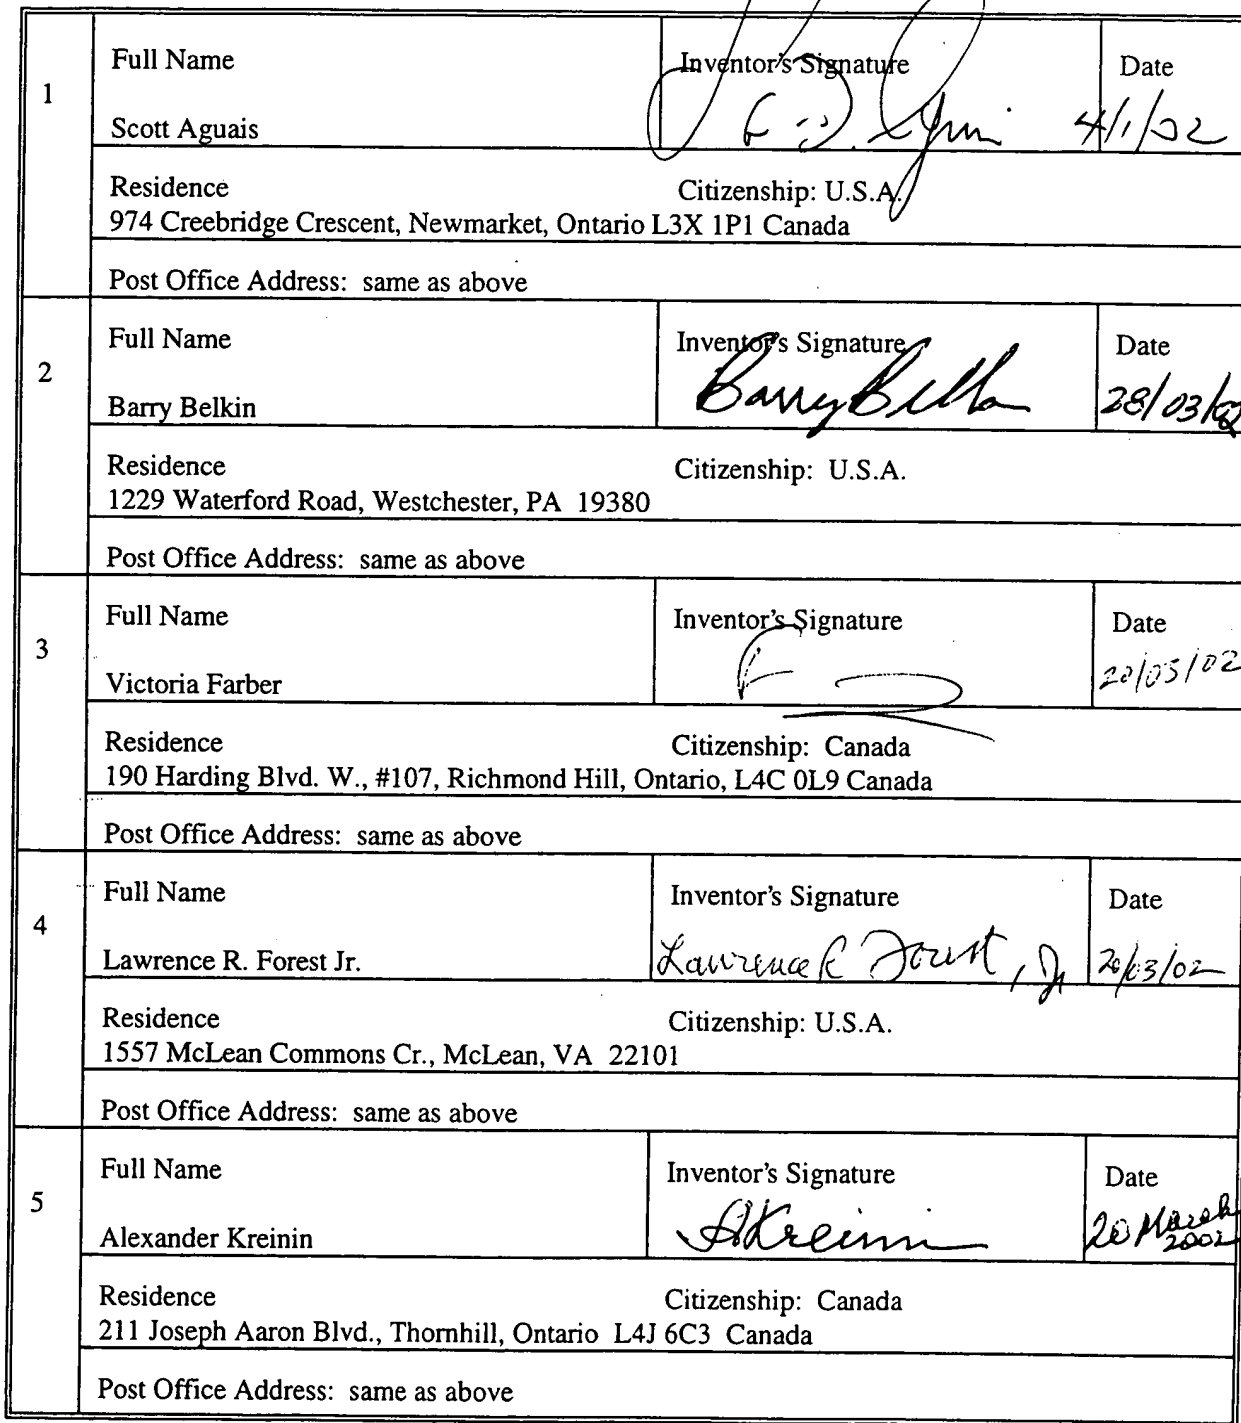 1
Full Name
Inventor's Signature
Date
Scott Aguais
4/1/02
Residence
Citizenship: U.S.A.
974 Creebridge Crescent, Newmarket, Ontario L3X 1P1 Canada
Post Office Address: same as above
2
Full Name
Inventor's Signature
Date
Barry Belkin
Barry Belkin
28/03/02
Residence
Citizenship: U.S.A.
1229 Waterford Road, Westchester, PA 19380
Post Office Address: same as above
3
Full Name
Inventor's Signature
Date
Victoria Farber
20/03/02
Residence
Citizenship: Canada
190 Harding Blvd. W., #107, Richmond Hill, Ontario, L4C 0L9 Canada
Post Office Address: same as above
4
Full Name
Inventor's Signature
Date
Lawrence R. Forest Jr.
Lawrence R Forest, Jr
20/03/02
Residence
Citizenship: U.S.A.
1557 McLean Commons Cr., McLean, VA 22101
Post Office Address: same as above
5
Full Name
Inventor's Signature
Date
Alexander Kreinin
AKreinin
20 March
2002
Residence
Citizenship: Canada
211 Joseph Aaron Blvd., Thornhill, Ontario L4J 6C3 Canada
Post Office Address: same as above